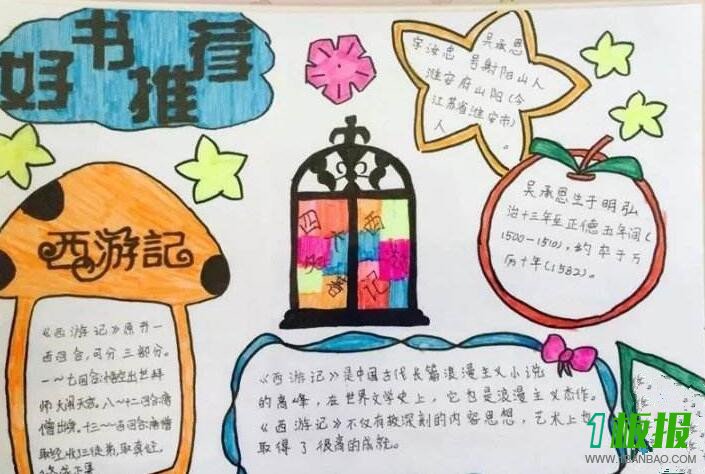 好书推荐
吴承恩
字汝忠 号射阳山人
淮安府山阳(今
江苏省淮安市)
人。
吴承恩生于明弘
治十三年至正德五年间(
1500-1510),约卒于万
历十年(1582)。
四大西
记
西游記
《西游记》原书一
百回合,可分三部分。
一~七回合:悟空出世拜
师大闹天宫。八~十二回合唐
僧出身。十三~一百回合唐僧
取经,收三徒弟,取真经,
《西游记》是中国古代长篇浪漫主义小说
的高峰,在世界文学史上,它也是浪漫主义杰作。
《西游记》不仅有较深刻的内容思想,艺术上也
取得了很高的成就。
1板报
WWW.1BANBAO.COM